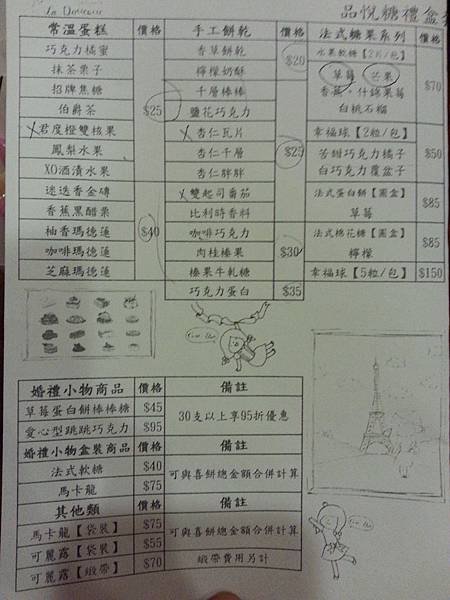 La Douceur
品悅糖禮盒
常溫蛋糕 價格
巧克力橘蜜
抹茶栗子
招牌焦糖
伯爵茶 $25
君度橙雙核果
鳳梨水果
XO酒漬水果
迷迭香金磚
香蕉黑醋栗
柚香瑪德蓮 $40
咖啡瑪德蓮
芝麻瑪德蓮
手工餅乾 價格
香草餅乾 $20
檸檬奶酥
千層棒棒
鹽花巧克力
杏仁瓦片
杏仁千層 $25
杏仁胖胖
雙起司番茄
比利時香料
咖啡巧克力
肉桂榛果 $30
榛果牛軋糖
巧克力蛋白 $35
法式糖果系列 價格
水果軟糖【2片/包】
草莓 芒果 $70
香蕉、什錦果莓
白桃石榴
幸福球【2粒/包】
苦甜巧克力橘子 $50
白巧克力覆盆子
法式蛋白餅【圓盒】 $85
草莓
法式棉花糖【圓盒】 $85
檸檬
幸福球【5粒/包】 $150
婚禮小物商品 價格 備註
草莓蛋白餅棒棒糖 $45 30支以上享95折優惠
愛心型跳跳巧克力 $95
婚禮小物盒裝商品 價格 備註
法式軟糖 $40 可與喜餅總金額合併計算
馬卡龍 $75
其他類 價格 備註
馬卡龍【袋裝】 $75 可與喜餅總金額合併計算
可麗露【袋裝】 $55
可麗露【緞帶】 $70 緞帶費用另計